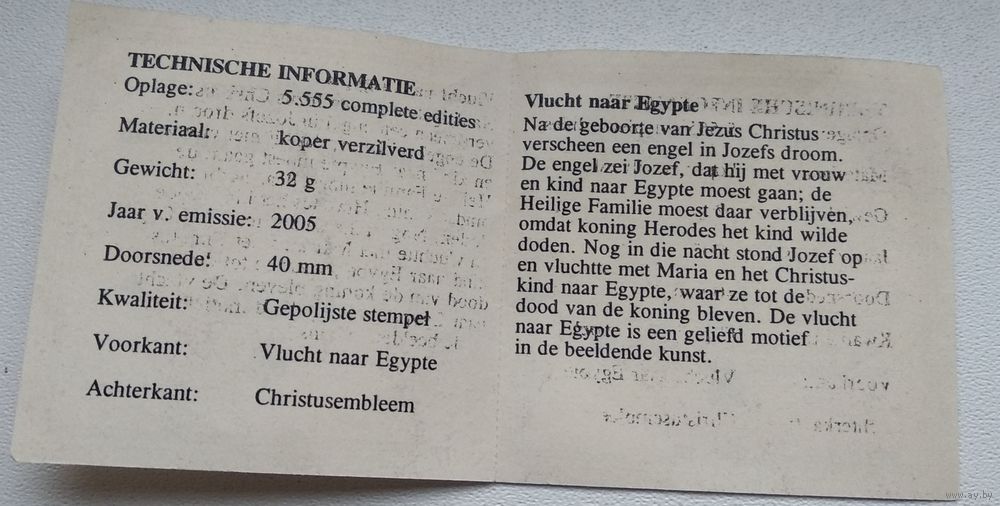 TECHNISCHE INFORMATIE
Oplage: 5.555 complete edities
Materiaal: koper verzilverd
Gewicht: 32 g
Jaar v. emissie: 2005
Doorsnede: 40 mm
Kwaliteit: Gepolijste stempel
Voorkant: Vlucht naar Egypte
Achterkant: Christusembleem
Vlucht naar Egypte
Na de geboorte van Jezus Christus
verscheen een engel in Jozefs droom.
De engel zei Jozef, dat hij met vrouw
en kind naar Egypte moest gaan; de
Heilige Familie moest daar verblijven,
omdat koning Herodes het kind wilde
doden. Nog in die nacht stond Jozef op
en vluchtte met Maria en het Christus-
kind naar Egypte, waar ze tot de
dood van de koning bleven. De vlucht
naar Egypte is een geliefd motief
in de beeldende kunst.
www.ay.by